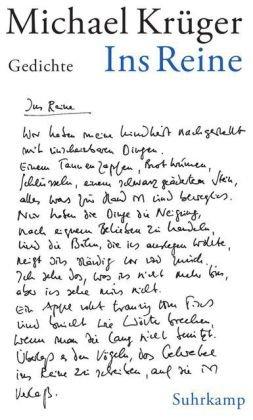 Michael Krüger
Gedichte Ins Reine
Ins Reine
Wir haben meine Kindheit nachgestellt
mit unscheinbaren Dingen.
Einem Tannenzapfen, Brotkrümen,
Schlüsseln, einem schwarz geäderten Stein,
alles was zur Hand und beweglich.
Nun haben die Dinge die Neigung,
nach eignem Belieben zu handeln,
und die Bühne, die ich
neigt sich ständig vor und zurück.
Ich sehe das, was ich nicht mehr bin,
aber ich sehe mich nicht.
Ein Apfel rollt traurig vom Tisch
und bricht wie Worte brechen,
wenn man sie lang nicht benützt.
Überlaß es den Vögeln, das
ins Reine zu schreiben, auf die
Verlaß.
Suhrkamp